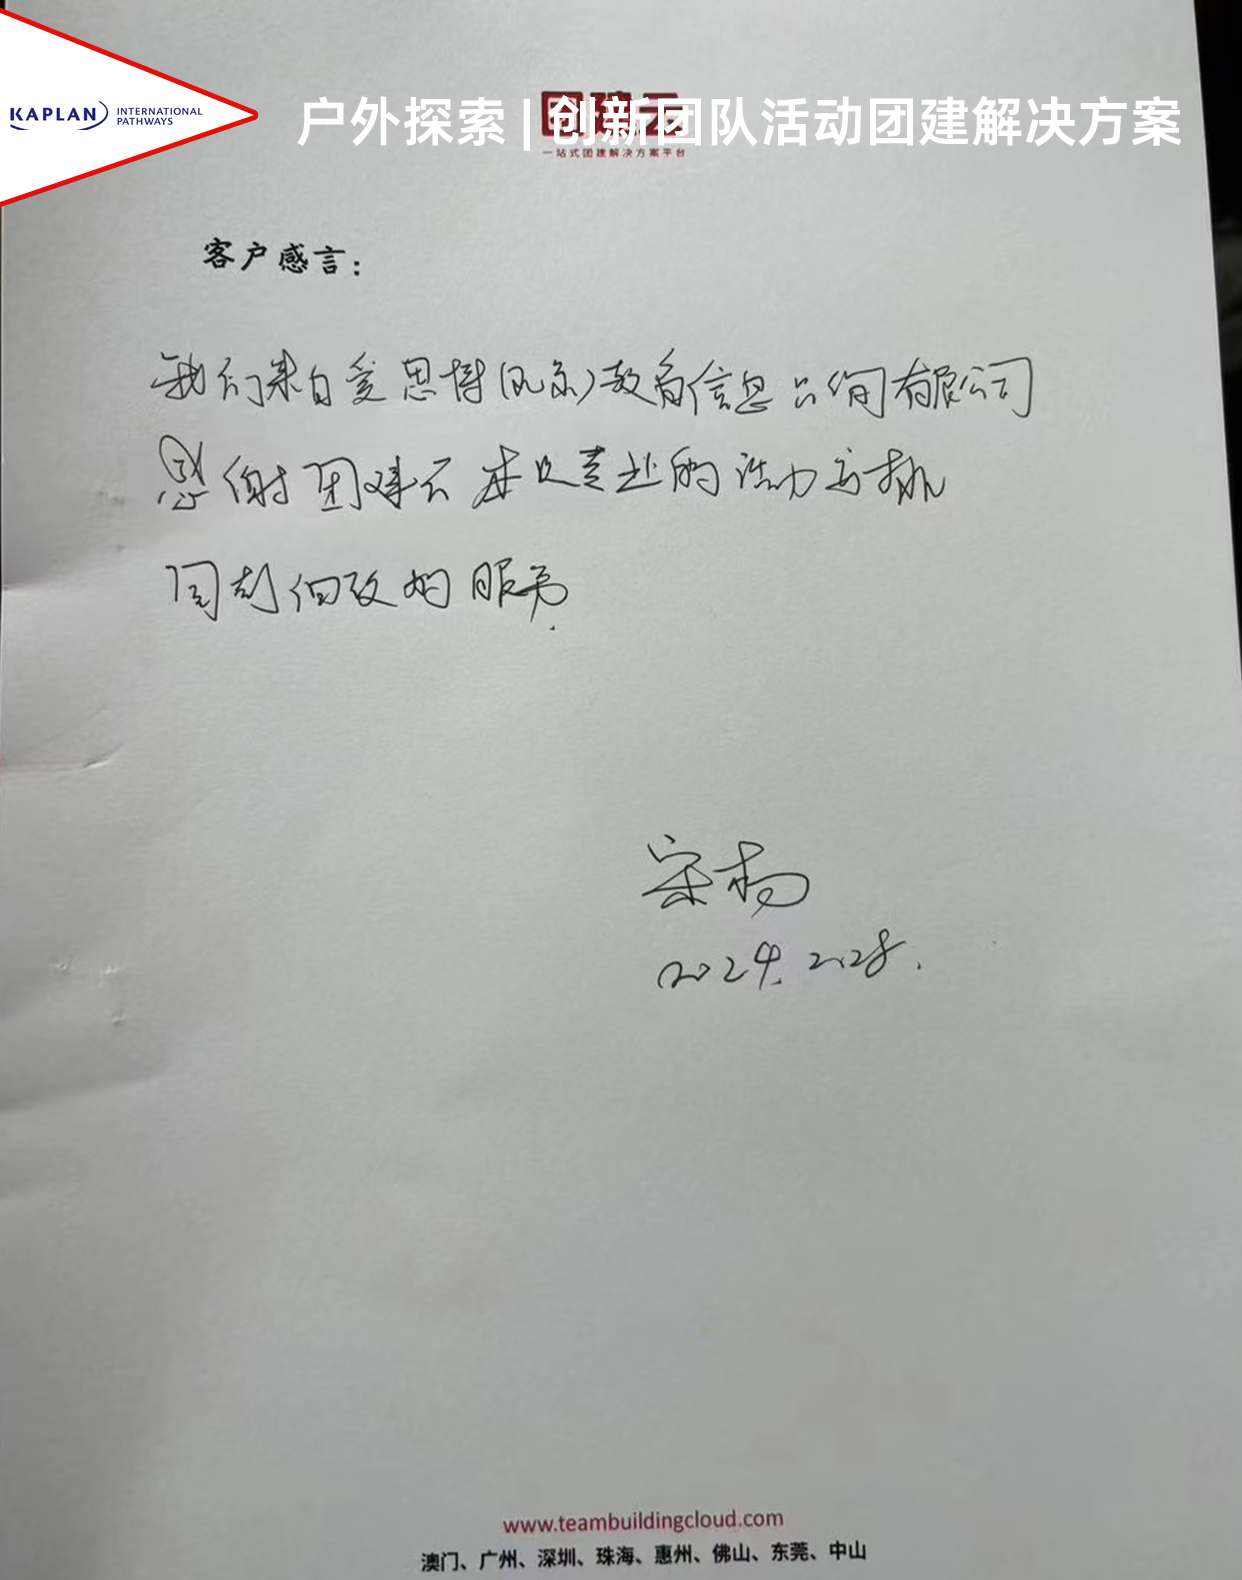 KAPLAN INTERNATIONAL
PATHWAYS
户外探索 | 创新团队活动团建解决方案
团建云
一站式团建解决方案平台
客户感言：
我们来自爱思博(北京)教育信息咨询有限公司
感谢团建云 本次专业的活动安排
周到细致的服务.
宋杨
2024.2.28.
www.teambuildingcloud.com
澳门、广州、深圳、珠海、惠州、佛山、东莞、中山